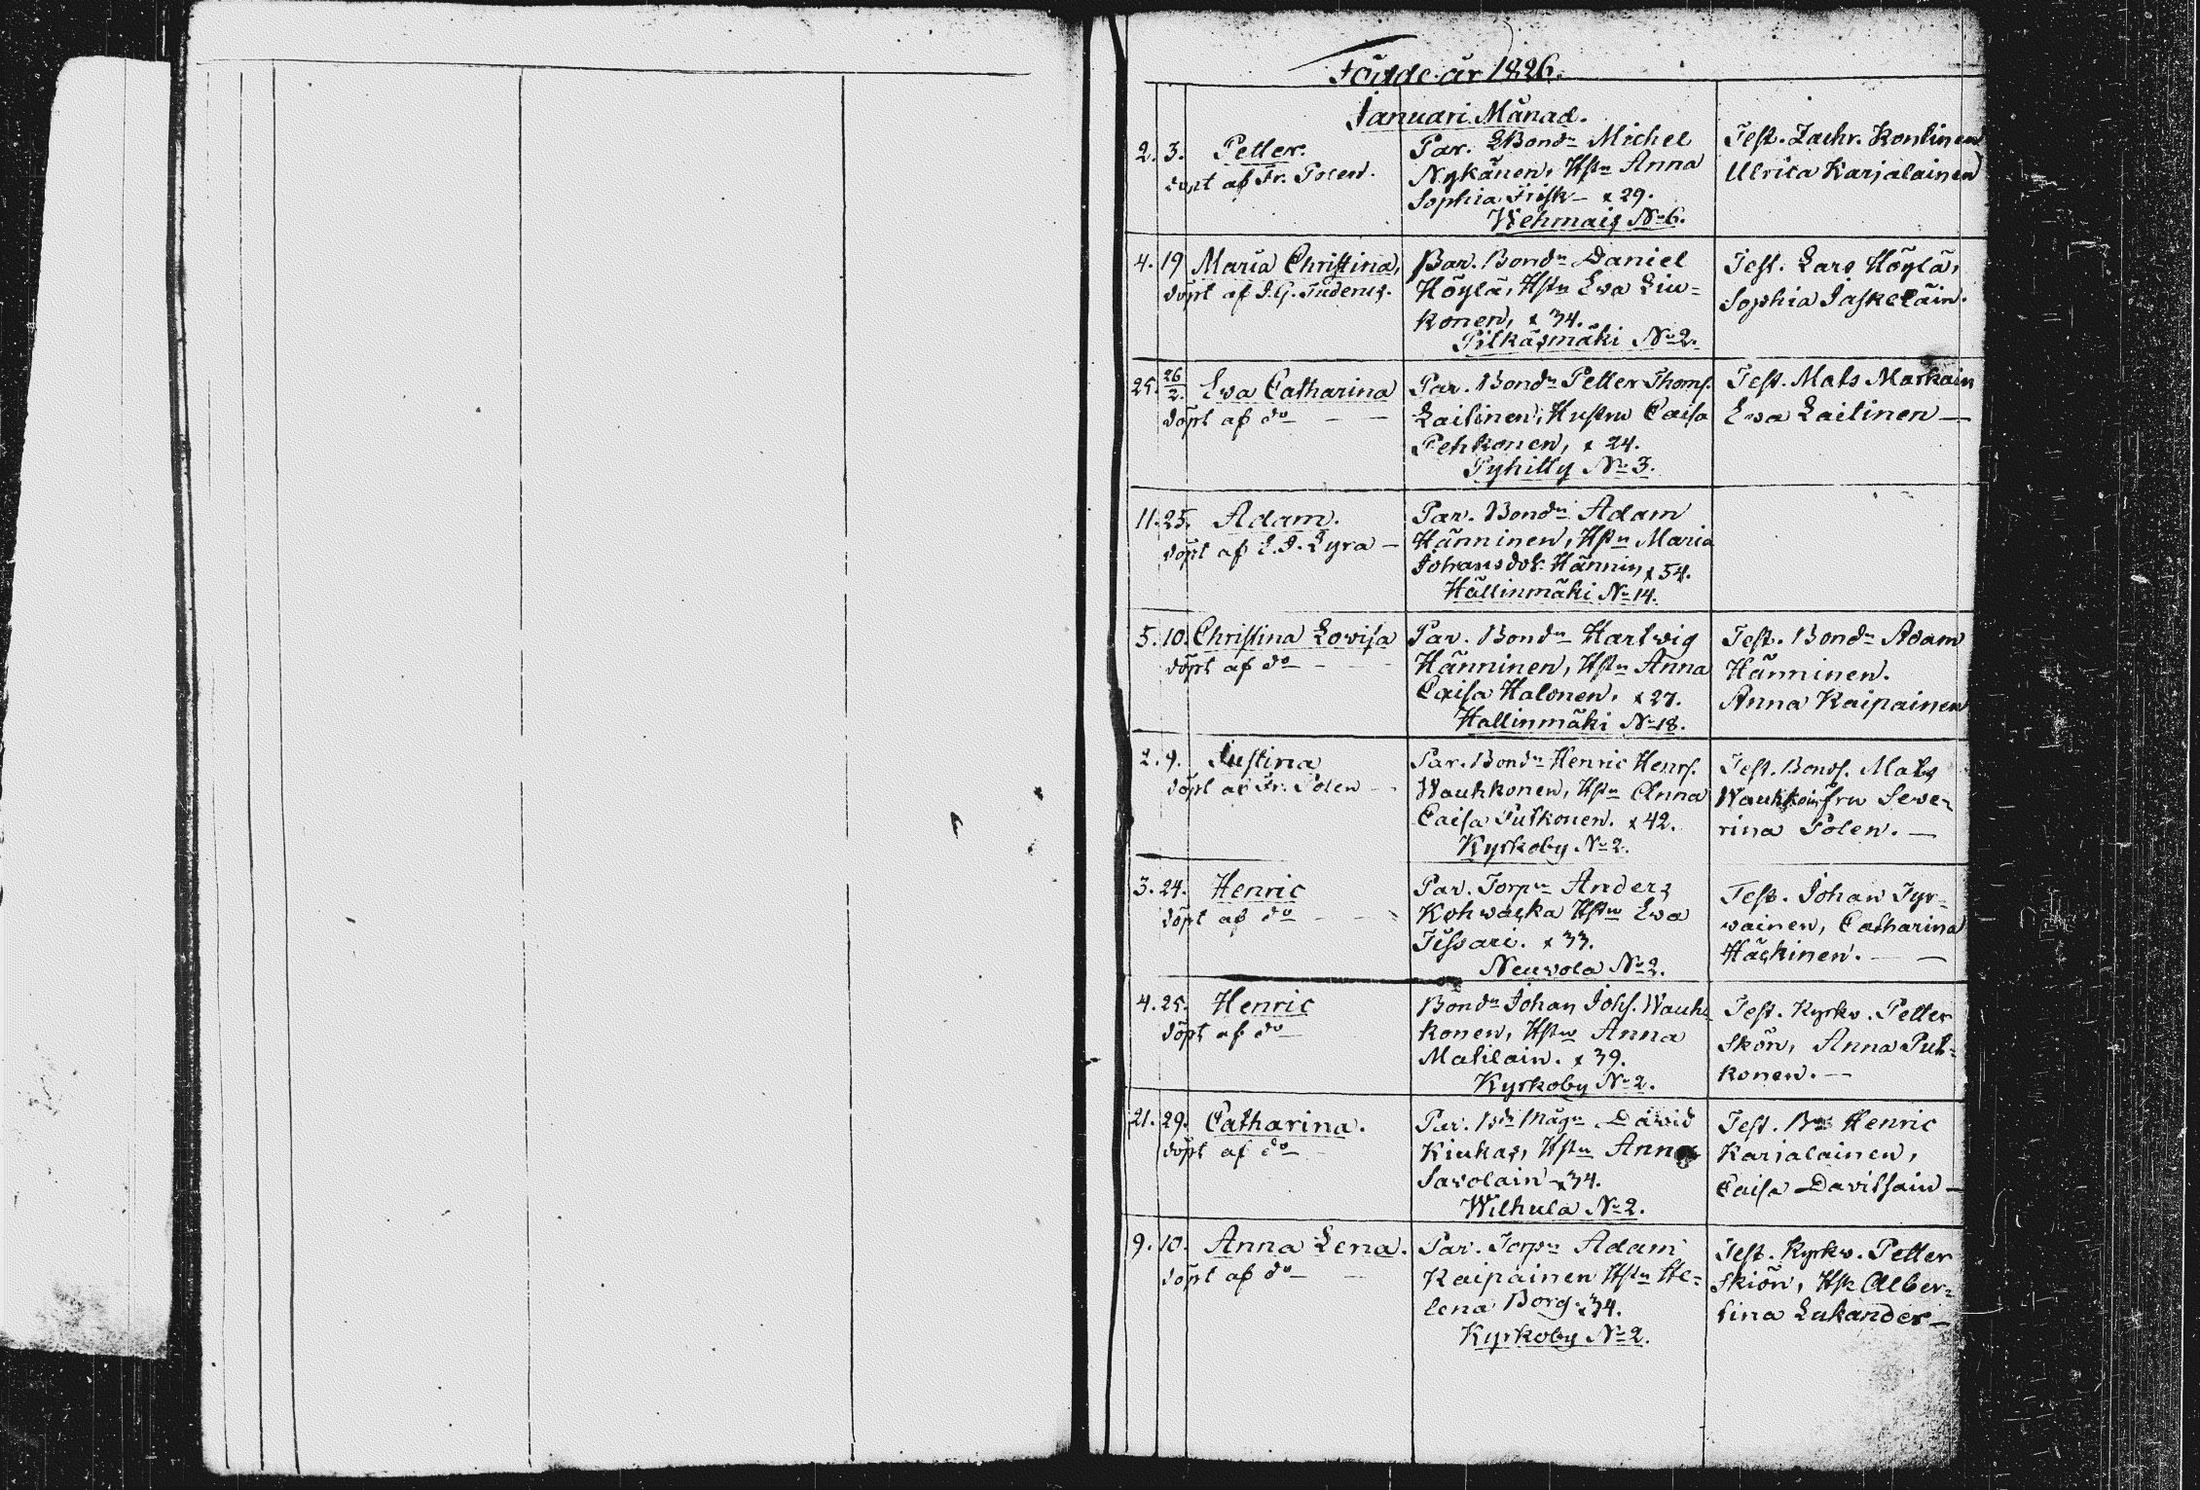 Födde år 1826.
Januari Månad.
2. 3. Petter.
döpt af Fr. Polen.
Par. Bondn Michel
Nykänen, Hstn Anna
Sophia Frisk x 29.
Wehmais No 6.
Test. Zachr. Kontinen
Ulrica Karjalainen
4. 19 Maria Christina,
döpt af J.G. Tuderus.
Par. Bondn Daniel
Höylä, Hstn Ewa Liu=
konen, x 34.
Pitkäsmäki No 2.
Test. Lars Höylä,
Sophia Jaskeläin.
25. 26/2. Ewa Catharina
döpt af do
Par. Bondn Petter Thoms.
Laitinen, Hustru Caisa
Pehkonen, x 24.
Pyhitty No 3.
Test. Mats Markain
Ewa Laitinen
11. 25. Adam.
döpt af E.J. Lyra
Par. Bondn Adam
Hänninen, Hstn Maria
Johansdot. Hännin x 54.
Hällinmäki No 14.
5. 10. Christina Lovisa
döpt af do
Par. Bondn Hartwig
Hänninen, Hstn Anna
Caisa Halonen. x 27.
Hallinmäki No 18.
Test. Bondn Adam
Hänninen.
Anna Kaipainen
2. 9. Justina
döpt af Fr. Polen
Par. Bondn Henric Henrs.
Wauhkonen, Hstn Anna
Caisa Putkonen. x 42.
Kyrkoby No 2.
Test. Bonds. Mats
Wauhkoin, fru Seve=
rina Polen.
3. 24. Henric
döpt af do
Par. Torpn Anders
Kohwacka Hstru Ewa
Tissari. x 33.
Neuvola No 2.
Test. Johan Tyr=
wainen, Catharina
Häckinen.
4. 25. Henric
döpt af do
Bondn Johan Johs. Wauh=
konen, Hstru Anna
Matilain. x 39.
Kyrkoby No 2.
Test. Kyrkv. Petter
Skön, Anna Put=
konen.
21. 29. Catharina.
döpt af do
Par. Bds Mågn David
Kiukas, Hstn Anna
Savolain x 34.
Wilhula No 2.
Test. Bn Henric
Karjalainen,
Caisa Davitsain
9. 10. Anna Lena.
döpt af do
Par. Torpn Adam
Kaipainen Hstn He=
lena Borg. x 34.
Kyrkoby No 2.
Test. Kyrkv. Petter
Skiön, Hst. Alber=
tina Lukander